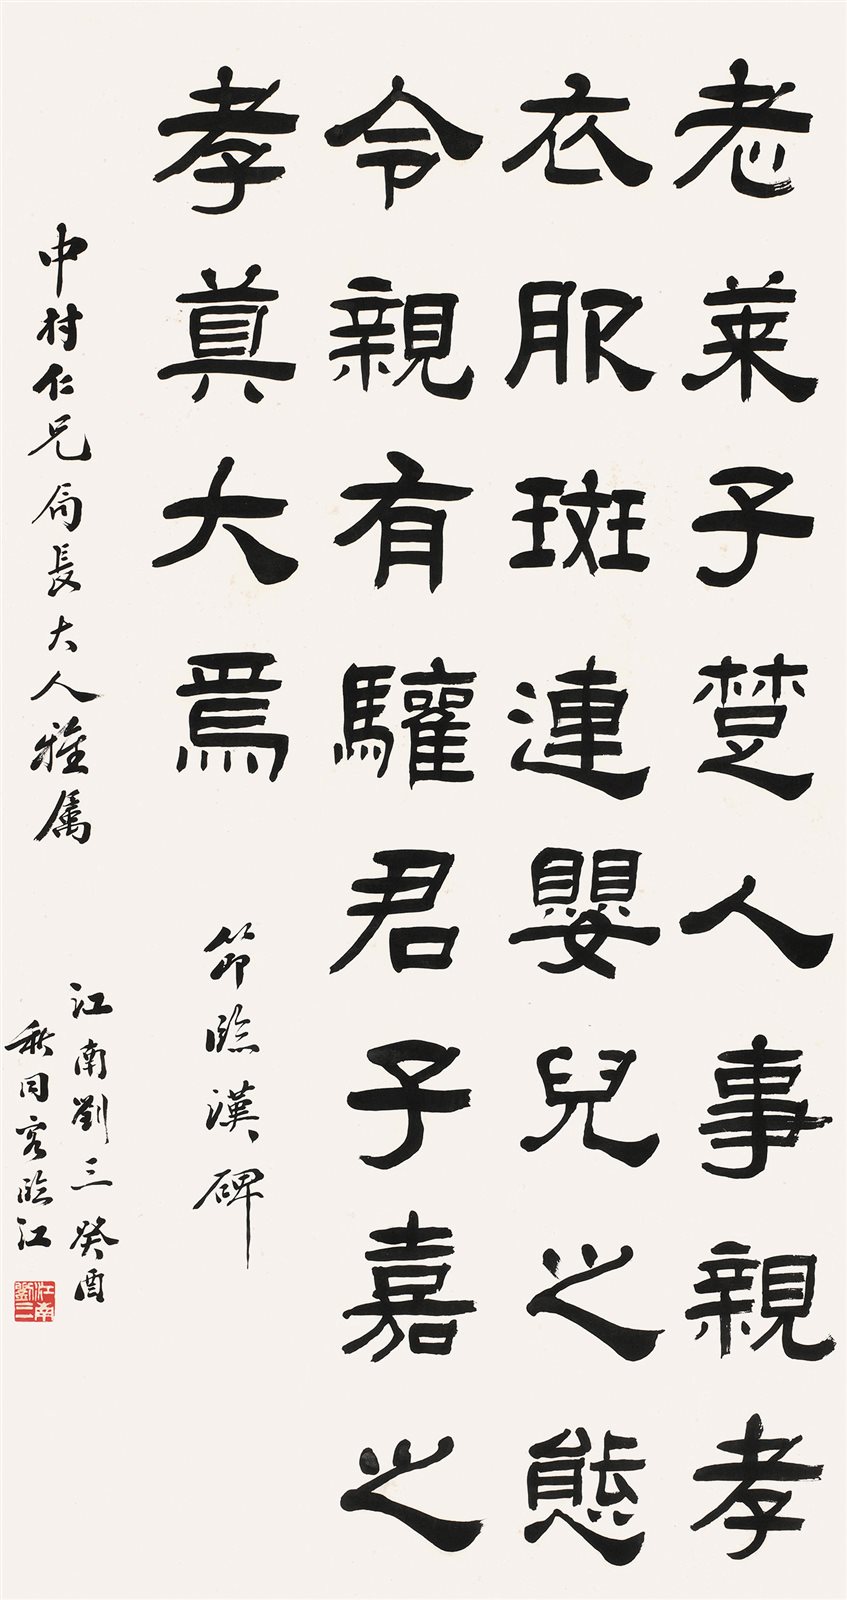 老莱子楚人事親孝
衣服斑連嬰兒之態
令親有驩君子嘉之
孝莫大焉
節臨漢碑
中村仁兄局長大人雅属
江南劉三癸酉
秋同客臨江
江南劉三